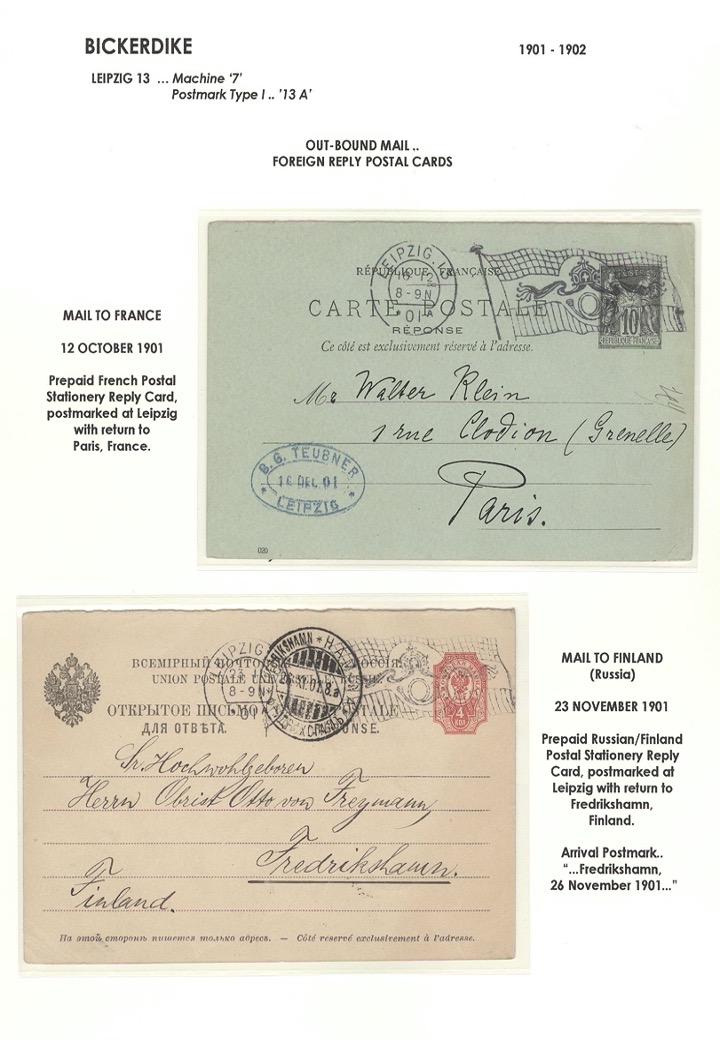 BICKERDIKE
1901 - 1902
LEIPZIG 13 ... Machine ‘7’
Postmark Type I .. ’13 A’
OUT-BOUND MAIL ..
FOREIGN REPLY POSTAL CARDS
MAIL TO FRANCE
12 OCTOBER 1901
Prepaid French Postal
Stationery Reply Card,
postmarked at Leipzig
with return to
Paris, France.
LEIPZIG.13
16 12
8-9N
01
A
RÉPUBLIQUE FRANÇAISE
CARTE POSTALE
RÉPONSE
Ce côté est exclusivement réservé à l'adresse.
10
Walter Klein
1 rue Clodion (Grenelle)
Paris.
B.G. TEUBNER
16 DEC. 01
LEIPZIG
020
LEIPZIG
23
8-9N
01
FREDRIKSHAMN * HAMINA
26.XI.01.8a
ВСЕМІРНЫЙ
UNION POSTALE
ОТКРЫТОЕ ПИСЬМО
ДЛЯ ОТВѢТА.
4
КОП
Sr. Hochwohlgeboren
Herrn Obrist Otto von Freymann,
Fredrikshamn.
Finland.
На этой сторонѣ пишется только адресъ. — Côté réservé exclusivement à l'adresse.
MAIL TO FINLAND
(Russia)
23 NOVEMBER 1901
Prepaid Russian/Finland
Postal Stationery Reply
Card, postmarked at
Leipzig with return to
Fredrikshamn,
Finland.
Arrival Postmark..
“...Fredrikshamn,
26 November 1901...”